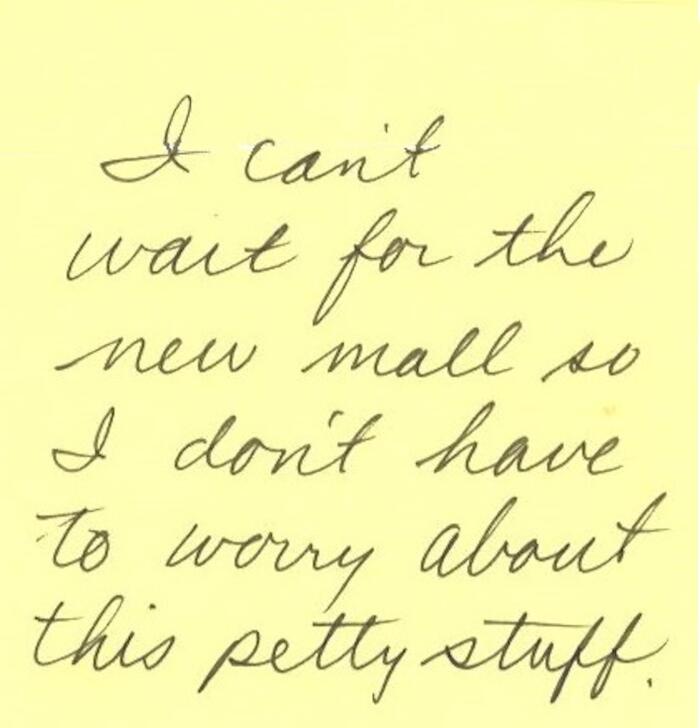 I can't
wait for the
new mall so
I don't have
to worry about
this petty stuff.